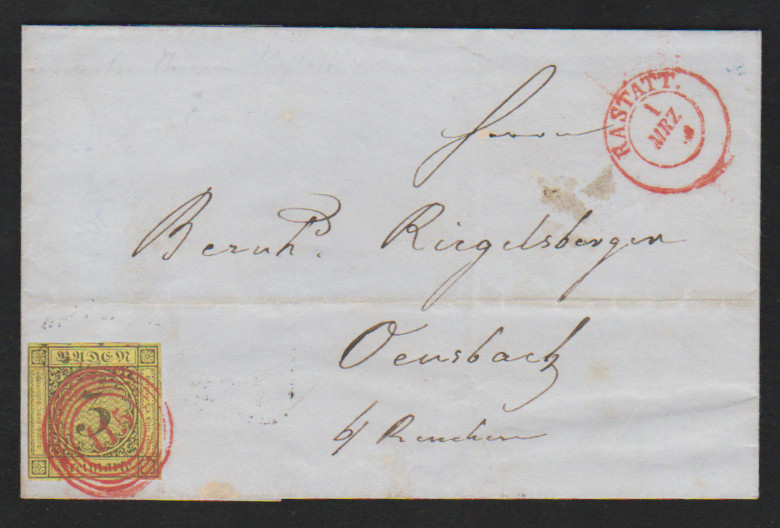 RASTATT.
1
MRZ
Herrn
Bernhd. Riegelsberger
Oensbach
b/ Renchen
BADEN
3
Freimarke